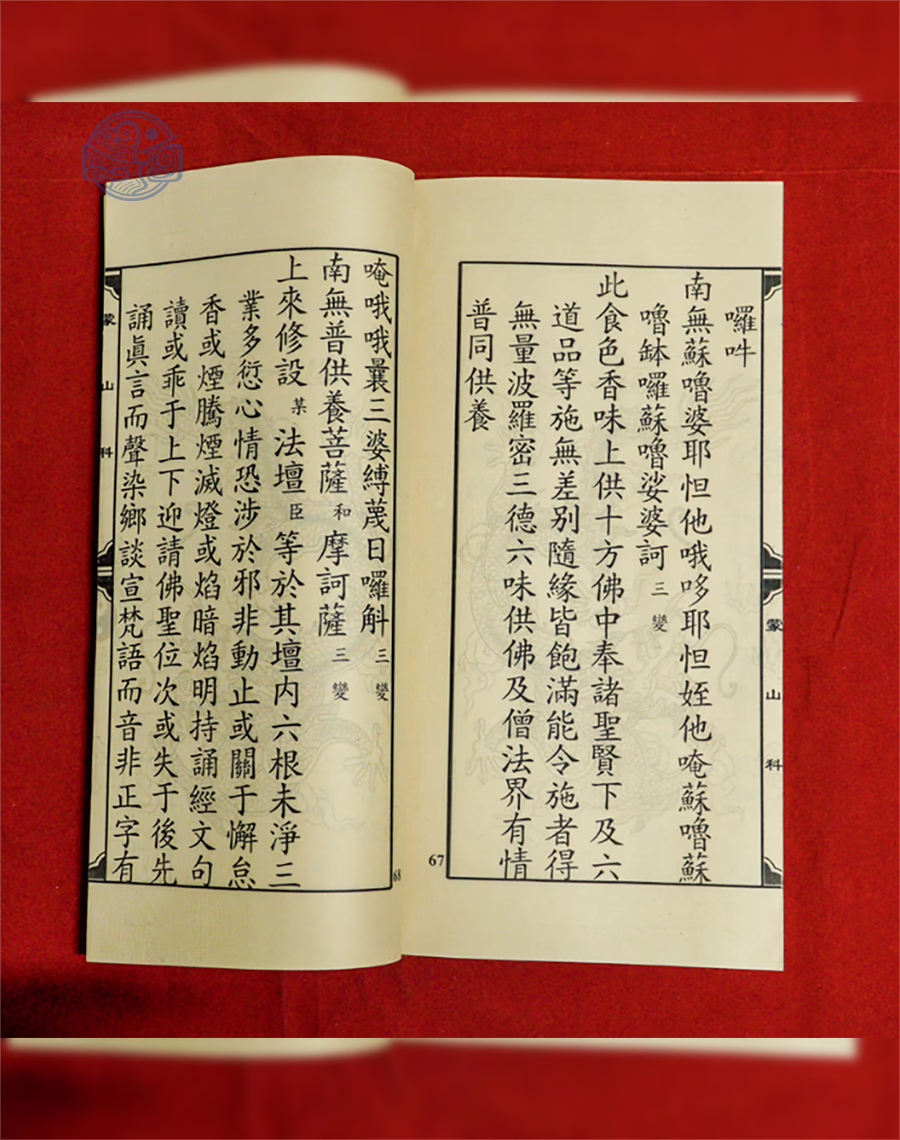 囉吽
南無蘇嚕婆耶怛他哦哆耶怛姪他唵蘇嚕蘇
嚕缽囉蘇嚕娑婆訶三變
此食色香味上供十方佛中奉諸聖賢下及六
道品等施無差别隨緣皆飽滿能令施者得
無量波羅密三德六味供佛及僧法界有情
普同供養
蒙山科
67
唵哦哦曩三婆縛蔑日囉斛三變
南無普供養菩薩和摩訶薩三變
上來修設某法壇臣等於其壇内六根未淨三
業多愆心情恐涉於邪非動止或關于懈怠
香或煙騰煙滅燈或焰暗焰明持誦經文句
讀或乖于上下迎請佛聖位次或失于後先
誦眞言而聲染鄉談宣梵語而音非正字有
蒙山科
68